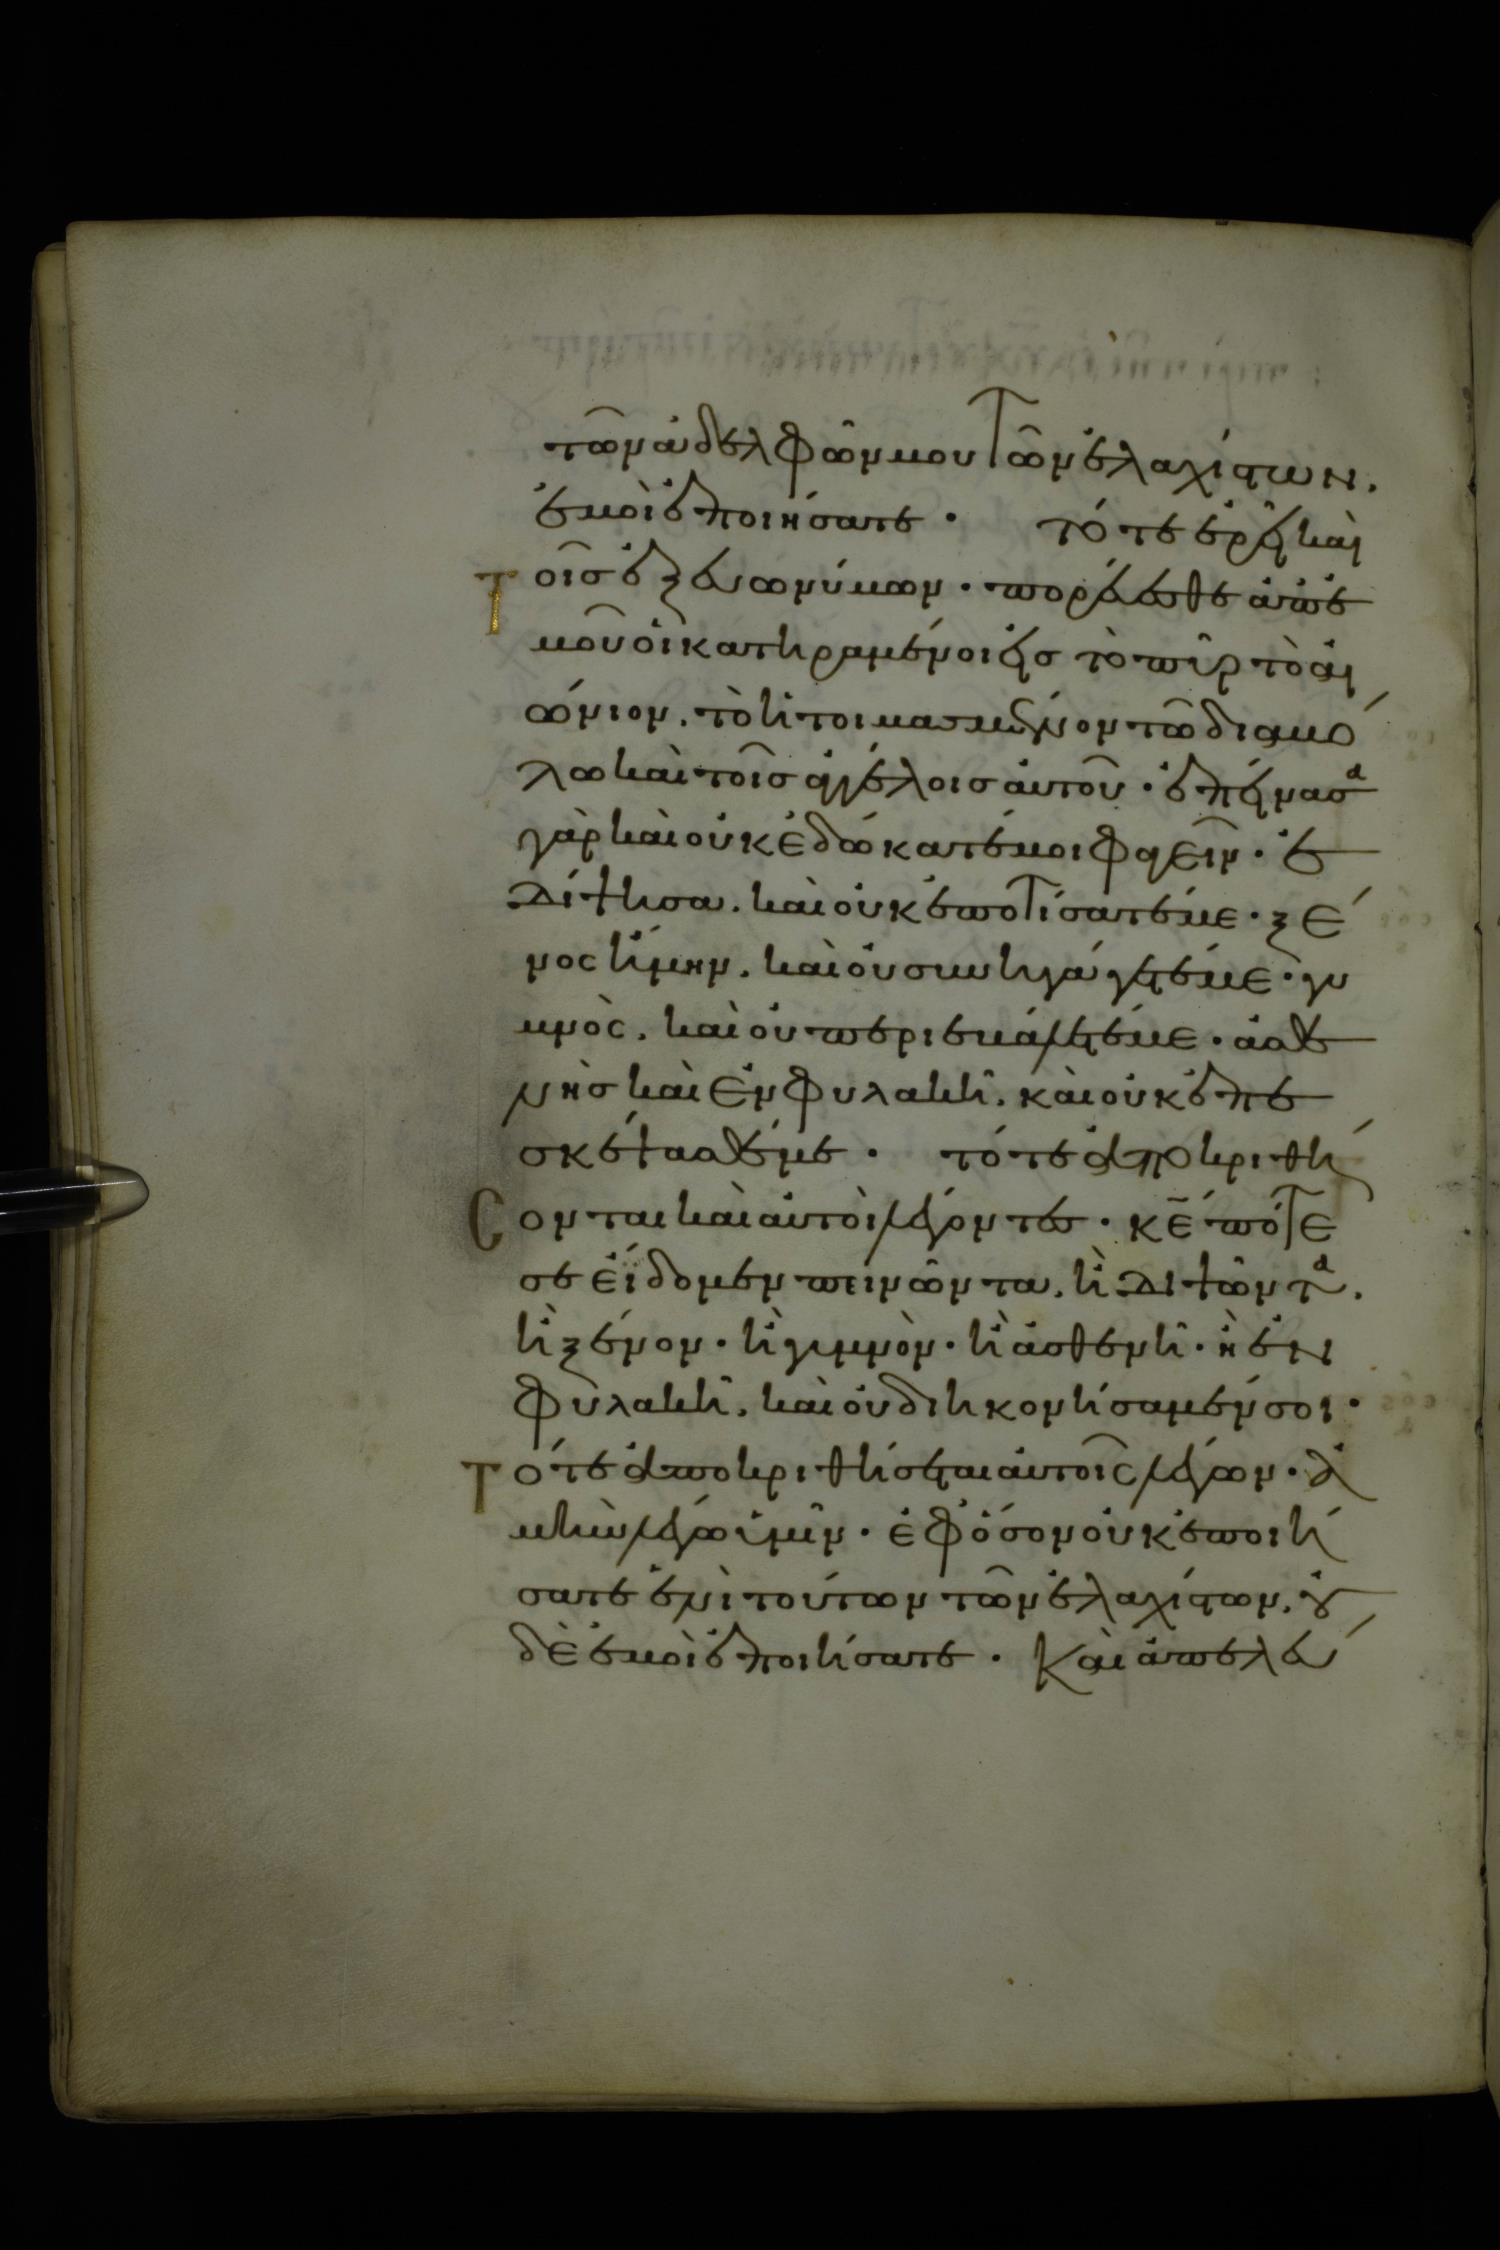 τῶν ἀδελφῶν μου τῶν ἐλαχίστων.
ἐμοὶ ἐποιήσατε · τότε ἐρεῖ καὶ
τοῖς ἐξ εὐωνύμων · πορεύεσθε ἀπ' ἐ
μοῦ οἱ κατηραμένοι εἰς τὸ πῦρ τὸ αἰ
ώνιον. τὸ ἡτοιμασμένον τῶ διαβό
λω καὶ τοῖς ἀγγέλοις αὐτοῦ · ἐπείνασα
γὰρ καὶ οὐκ ἐδώκατέ μοι φαγεῖν · ἐ
δίψησα. καὶ οὐκ ἐποτίσατέ με · ξέ
νος ἤμην. καὶ οὐ συνηγάγετέ με · γυ
μνὸς. καὶ οὐ περιεβάλετέ με · ἀσθε
νὴς καὶ ἐν φυλακῆ. καὶ οὐκ ἐπε
σκέψασθέ με · τότε ἀποκριθή
σονται καὶ αὐτοὶ λέγοντες · κ̅ε̅ πότε
σε εἴδομεν πεινῶντα. ἢ διψῶντα.
ἢ ξένον · ἢ γυμνὸν · ἢ ἀσθενῆ · ἢ ἐν
φυλακῆ. καὶ οὐ διηκονήσαμέν σοι ·
τότε ἀποκριθήσεται αὐτοῖς λέγων · ἀ
μὴν λέγω ὑμῖν · ἐφ' ὅσον οὐκ ἐποιή
σατε ἑνὶ τούτων τῶν ἐλαχίστων. οὐ
δὲ ἐμοὶ ἐποιήσατε · Καὶ ἀπελεύ